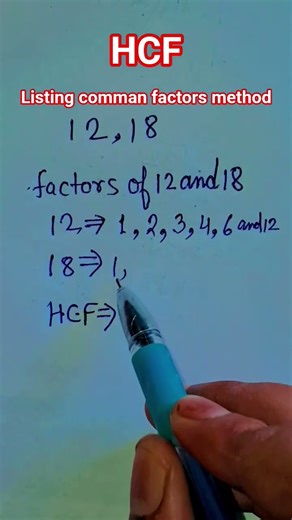 HCF
Listing comman factors method
12, 18
factors of 12 and 18
12 ⇒ 1, 2, 3, 4, 6 and 12
18 ⇒ 1,
HCF ⇒